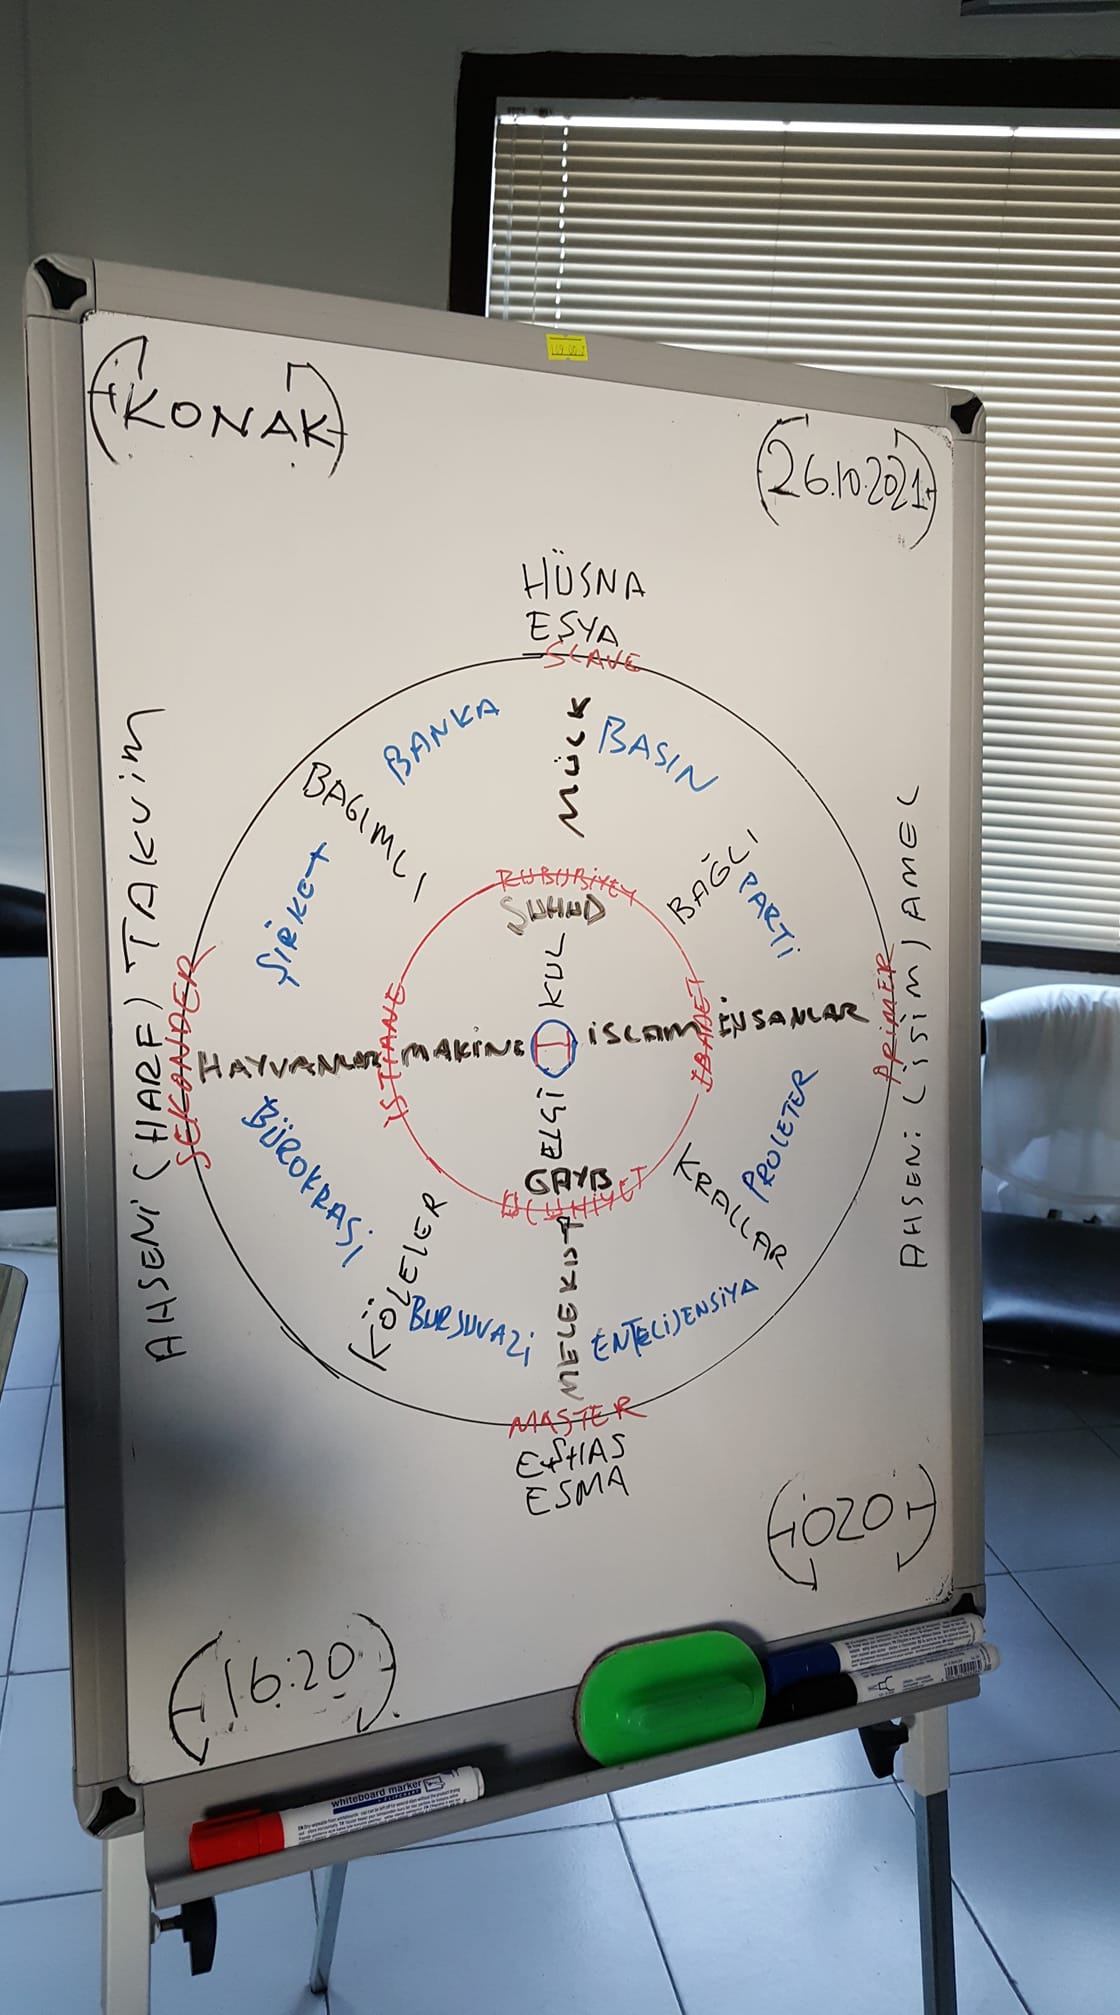 KONAK
26.10.2021
HÜSNA
ESYA
SLAVE
BANKA
MÜLK
BASIN
BAGIMLI
BAĞLI
ŞİRKET
PARTİ
RUBUBİYET
ŞUHUD
KUL
AHSENİ (HARF) TAKVİM
SEKONDER
HAYVANLAR
İSTİANE
MAKİNE
İSLAM
İBADET
İNSANLAR
PRİMER
AHSENİ (İSİM) AMEL
ELGİ
GAYB
BÜROKRASİ
PROLETER
KÖLELER
KRALLAR
BURJUVAZİ
MELEKUT
ENTELİJENSİYA
MASTER
EŞHAS
ESMA
16:20
whiteboard marker